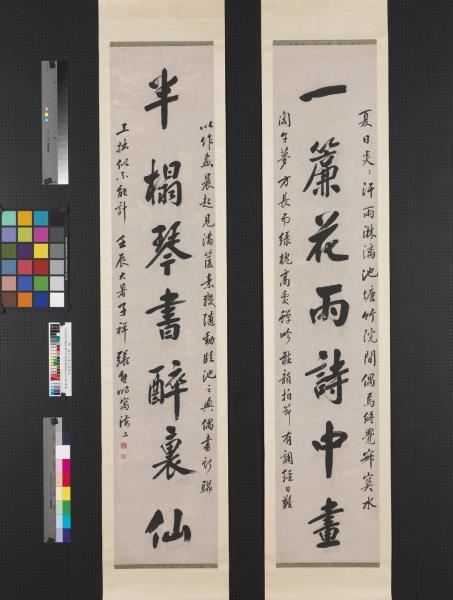 一簾花雨詩中畫
夏日炎:汗雨淋漓池塘竹院間偶爲終覺寂寞水
閣午夢方長而綠槐高處蟬吟韻拍節有調
半榻琴書醉裏仙
以作畫晨起見滿篋素牋隨動臨池之興偶書舊聯
工拙似不能計 壬辰大暑子祥張熊時寓海上